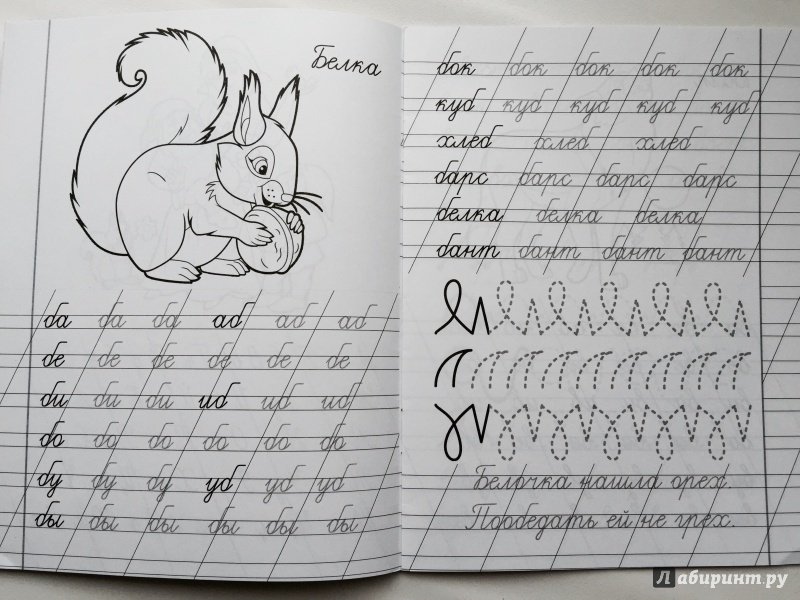 Белка
ба ба ба аб аб аб
бе бе бе бе бе бе
би би би иб иб иб
бо бо бо бо бо бо
бу бу бу уб уб уб
бы бы бы бы бы бы
бок бок бок бок бок
куб куб куб куб куб
хлеб хлеб хлеб
барс барс барс барс
белка белка белка
бант бант бант бант
Белочка нашла орех.
Пообедать ей не грех.
Лабиринт.ру